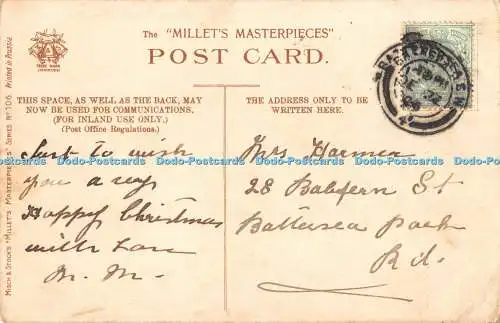 The "MILLET'S MASTERPIECES"
POST CARD.
THIS SPACE, AS WELL AS THE BACK, MAY
NOW BE USED FOR COMMUNICATIONS.
(FOR INLAND USE ONLY.)
(Post Office Regulations.)
THE ADDRESS ONLY TO BE
WRITTEN HERE.
Just to wish
you a very
Happy Christmas
with Love
M. M.
Mrs Harmer
28 St
Battersea Park
Rd.
MISCH & STOCK'S "MILLET'S MASTERPIECES" SERIES No 106. Printed in Prussia.
TRADE MARK
Dodo-Postcards Dodo-Postcards Dodo-Postcards Dodo-Postcards Dodo-Postcards
Dodo-Postcards Dodo-Postcards Dodo-Postcards Dodo-Postcards Dodo-Postcards